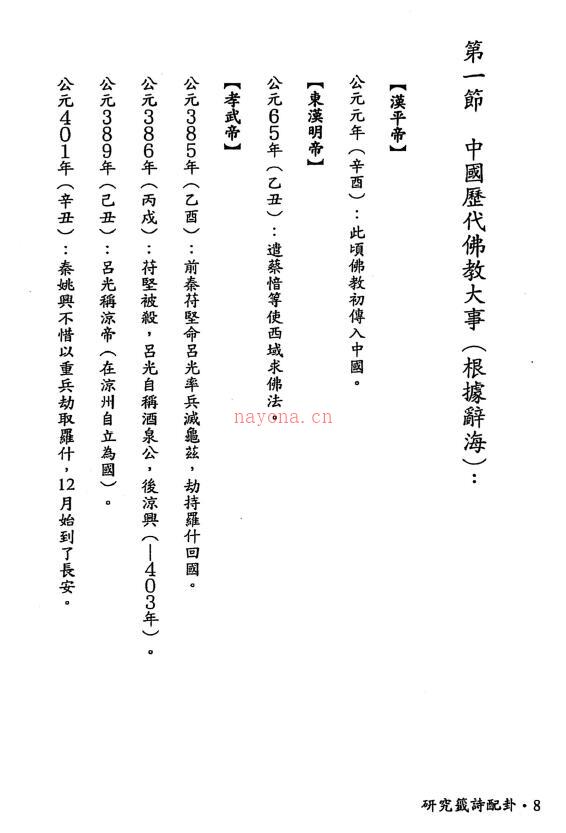 第一節　中國歷代佛教大事（根據辭海）：
【漢平帝】
公元元年（辛酉）：此頃佛教初傳入中國。
【東漢明帝】
公元65年（乙丑）：遣蔡愔等使西域求佛法。
【孝武帝】
公元385年（乙酉）：前秦苻堅命呂光率兵滅龜茲，劫持羅什回國。
公元386年（丙戍）：苻堅被殺，呂光自稱酒泉公，後涼興（—403年）。
公元389年（己丑）：呂光稱涼帝（在涼州自立為國）。
公元401年（辛丑）：秦姚興不惜以重兵劫取羅什，12月始到了長安。
nayona.cn
研究籤詩配卦・8